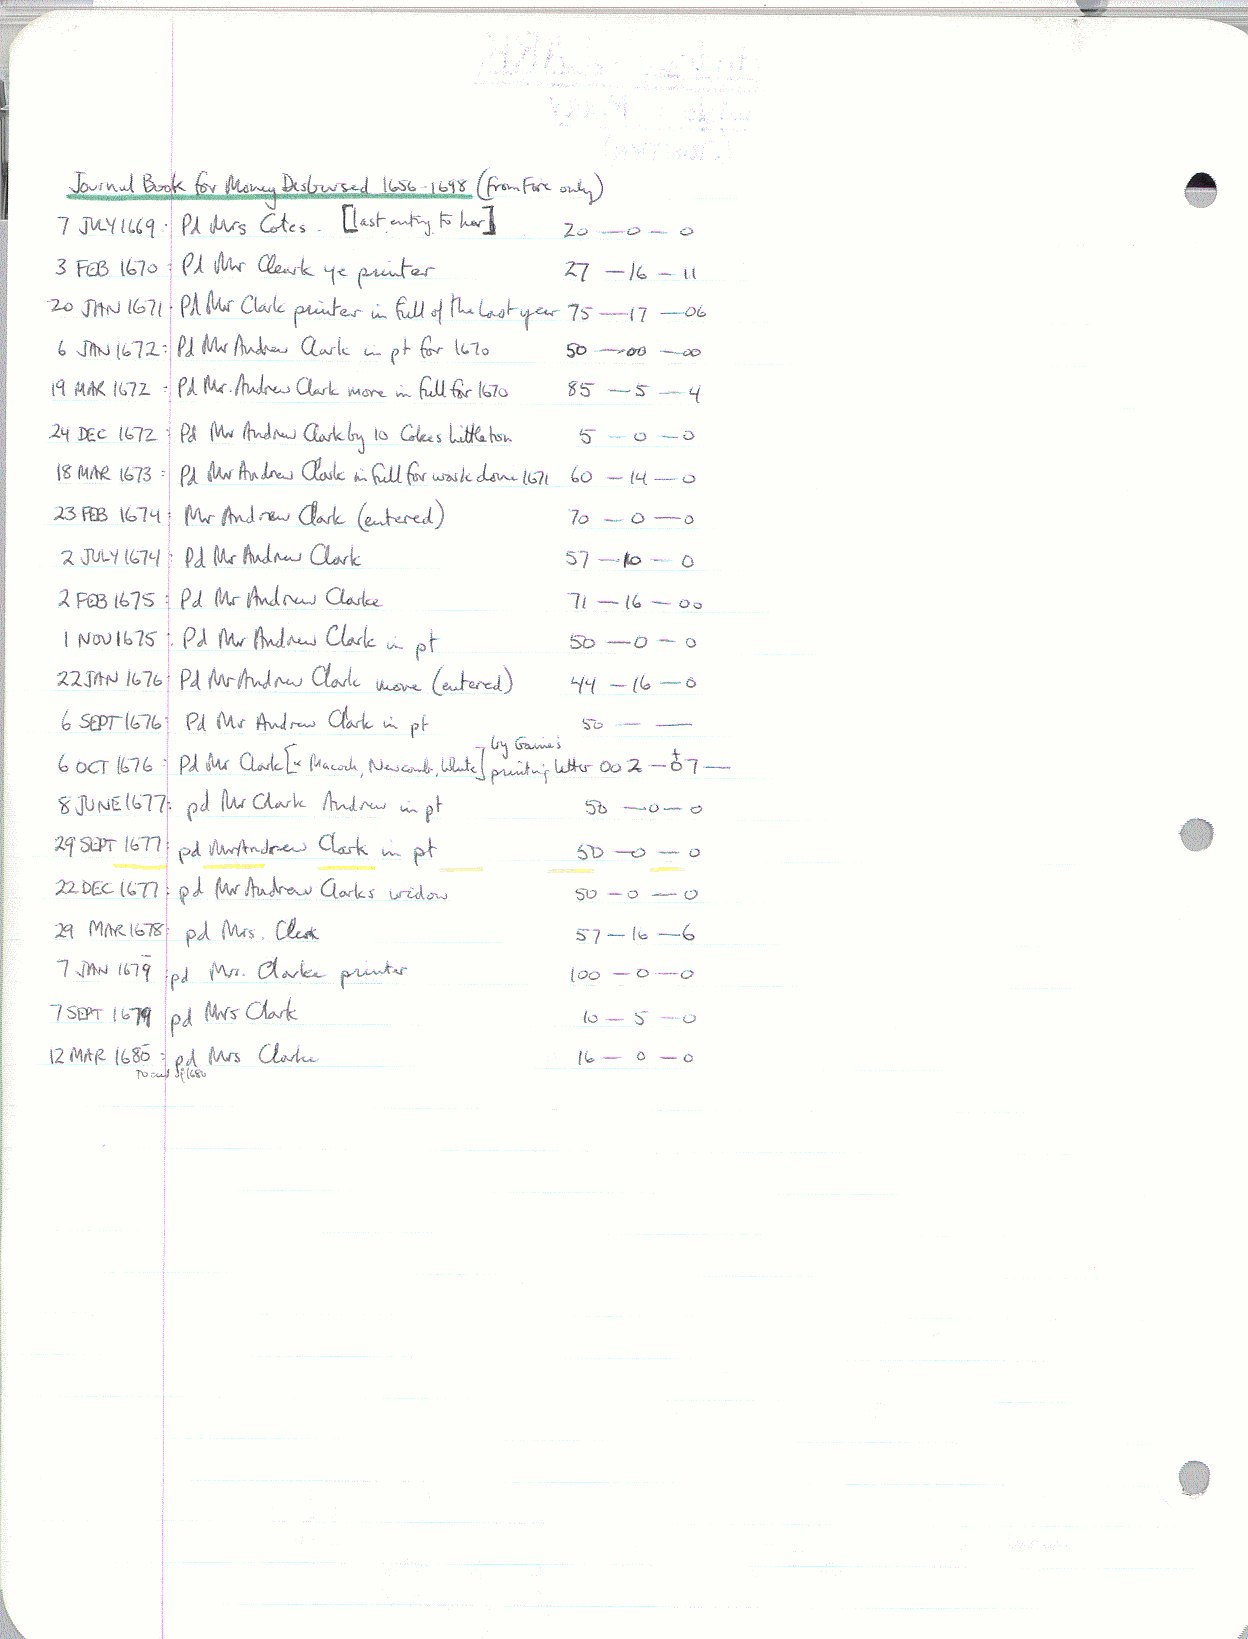 Journal Book for Money Disbursed 1656-1698 (from Fire only)
7 JULY 1669: Pd Mrs Cotes. [last entry to her] 20 — 0 — 0
3 FEB 1670: Pd Mr Cleark ye printer 27 — 16 — 11
20 JAN 1671: Pd Mr Clark printer in full of the last year 75 — 17 — 06
6 JAN 1672: Pd Mr Andrew Clark in pt for 1670 50 — 00 — 00
19 MAR 1672: Pd Mr. Andrew Clark more in full for 1670 85 — 5 — 4
24 DEC 1672: Pd Mr Andrew Clark by 10 Cokes Littleton 5 — 0 — 0
18 MAR 1673: Pd Mr Andrew Clark in full for work done 1671 60 — 14 — 0
23 FEB 1674: Mr Andrew Clark (entered) 70 — 0 — 0
2 JULY 1674: Pd Mr Andrew Clark 57 — 10 — 0
2 FEB 1675: Pd Mr Andrew Clarke 71 — 16 — 00
1 NOV 1675: Pd Mr Andrew Clark in pt 50 — 0 — 0
22 JAN 1676: Pd Mr Andrew Clark more (entered) 44 — 16 — 0
6 SEPT 1676: Pd Mr Andrew Clark in pt 50 — —
6 OCT 1676: Pd Mr Clark [& Macock, Newcomb, White] by Gaines printing letter 002 — 07 —
8 JUNE 1677: pd Mr Clark Andrew in pt 50 — 0 — 0
29 SEPT 1677: pd Mr Andrew Clark in pt 50 — 0 — 0
22 DEC 1677: pd Mr Andrew Clarks widow 50 — 0 — 0
29 MAR 1678: pd Mrs. Clerk 57 — 16 — 6
7 JAN 1679 pd Mrs. Clarke printer 100 — 0 — 0
7 SEPT 1679 pd Mrs Clark 10 — 5 — 0
12 MAR 1680: pd Mrs Clarke 16 — 0 — 0
To end of 1680